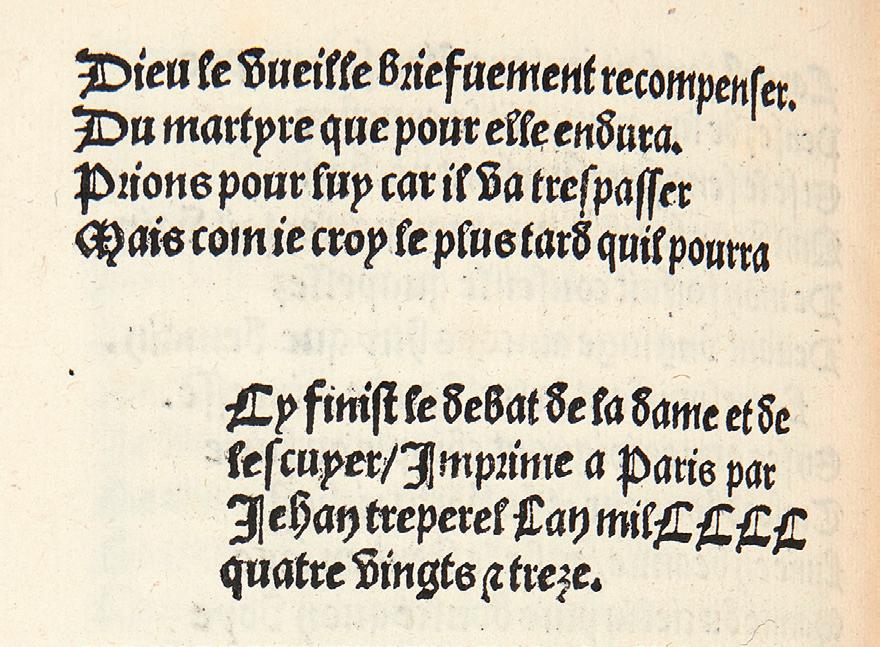 Dieu le vueille briefuement recompenser.
Du martyre que pour elle endura.
Prions pour luy car il va trespasser
Mais com ie croy le plus tard quil pourra
Cy finist le debat de la dame et de
lescuyer/Imprime a Paris par
Jehan treperel Lan mil CCCC
quatre vingts ⁊ treze.